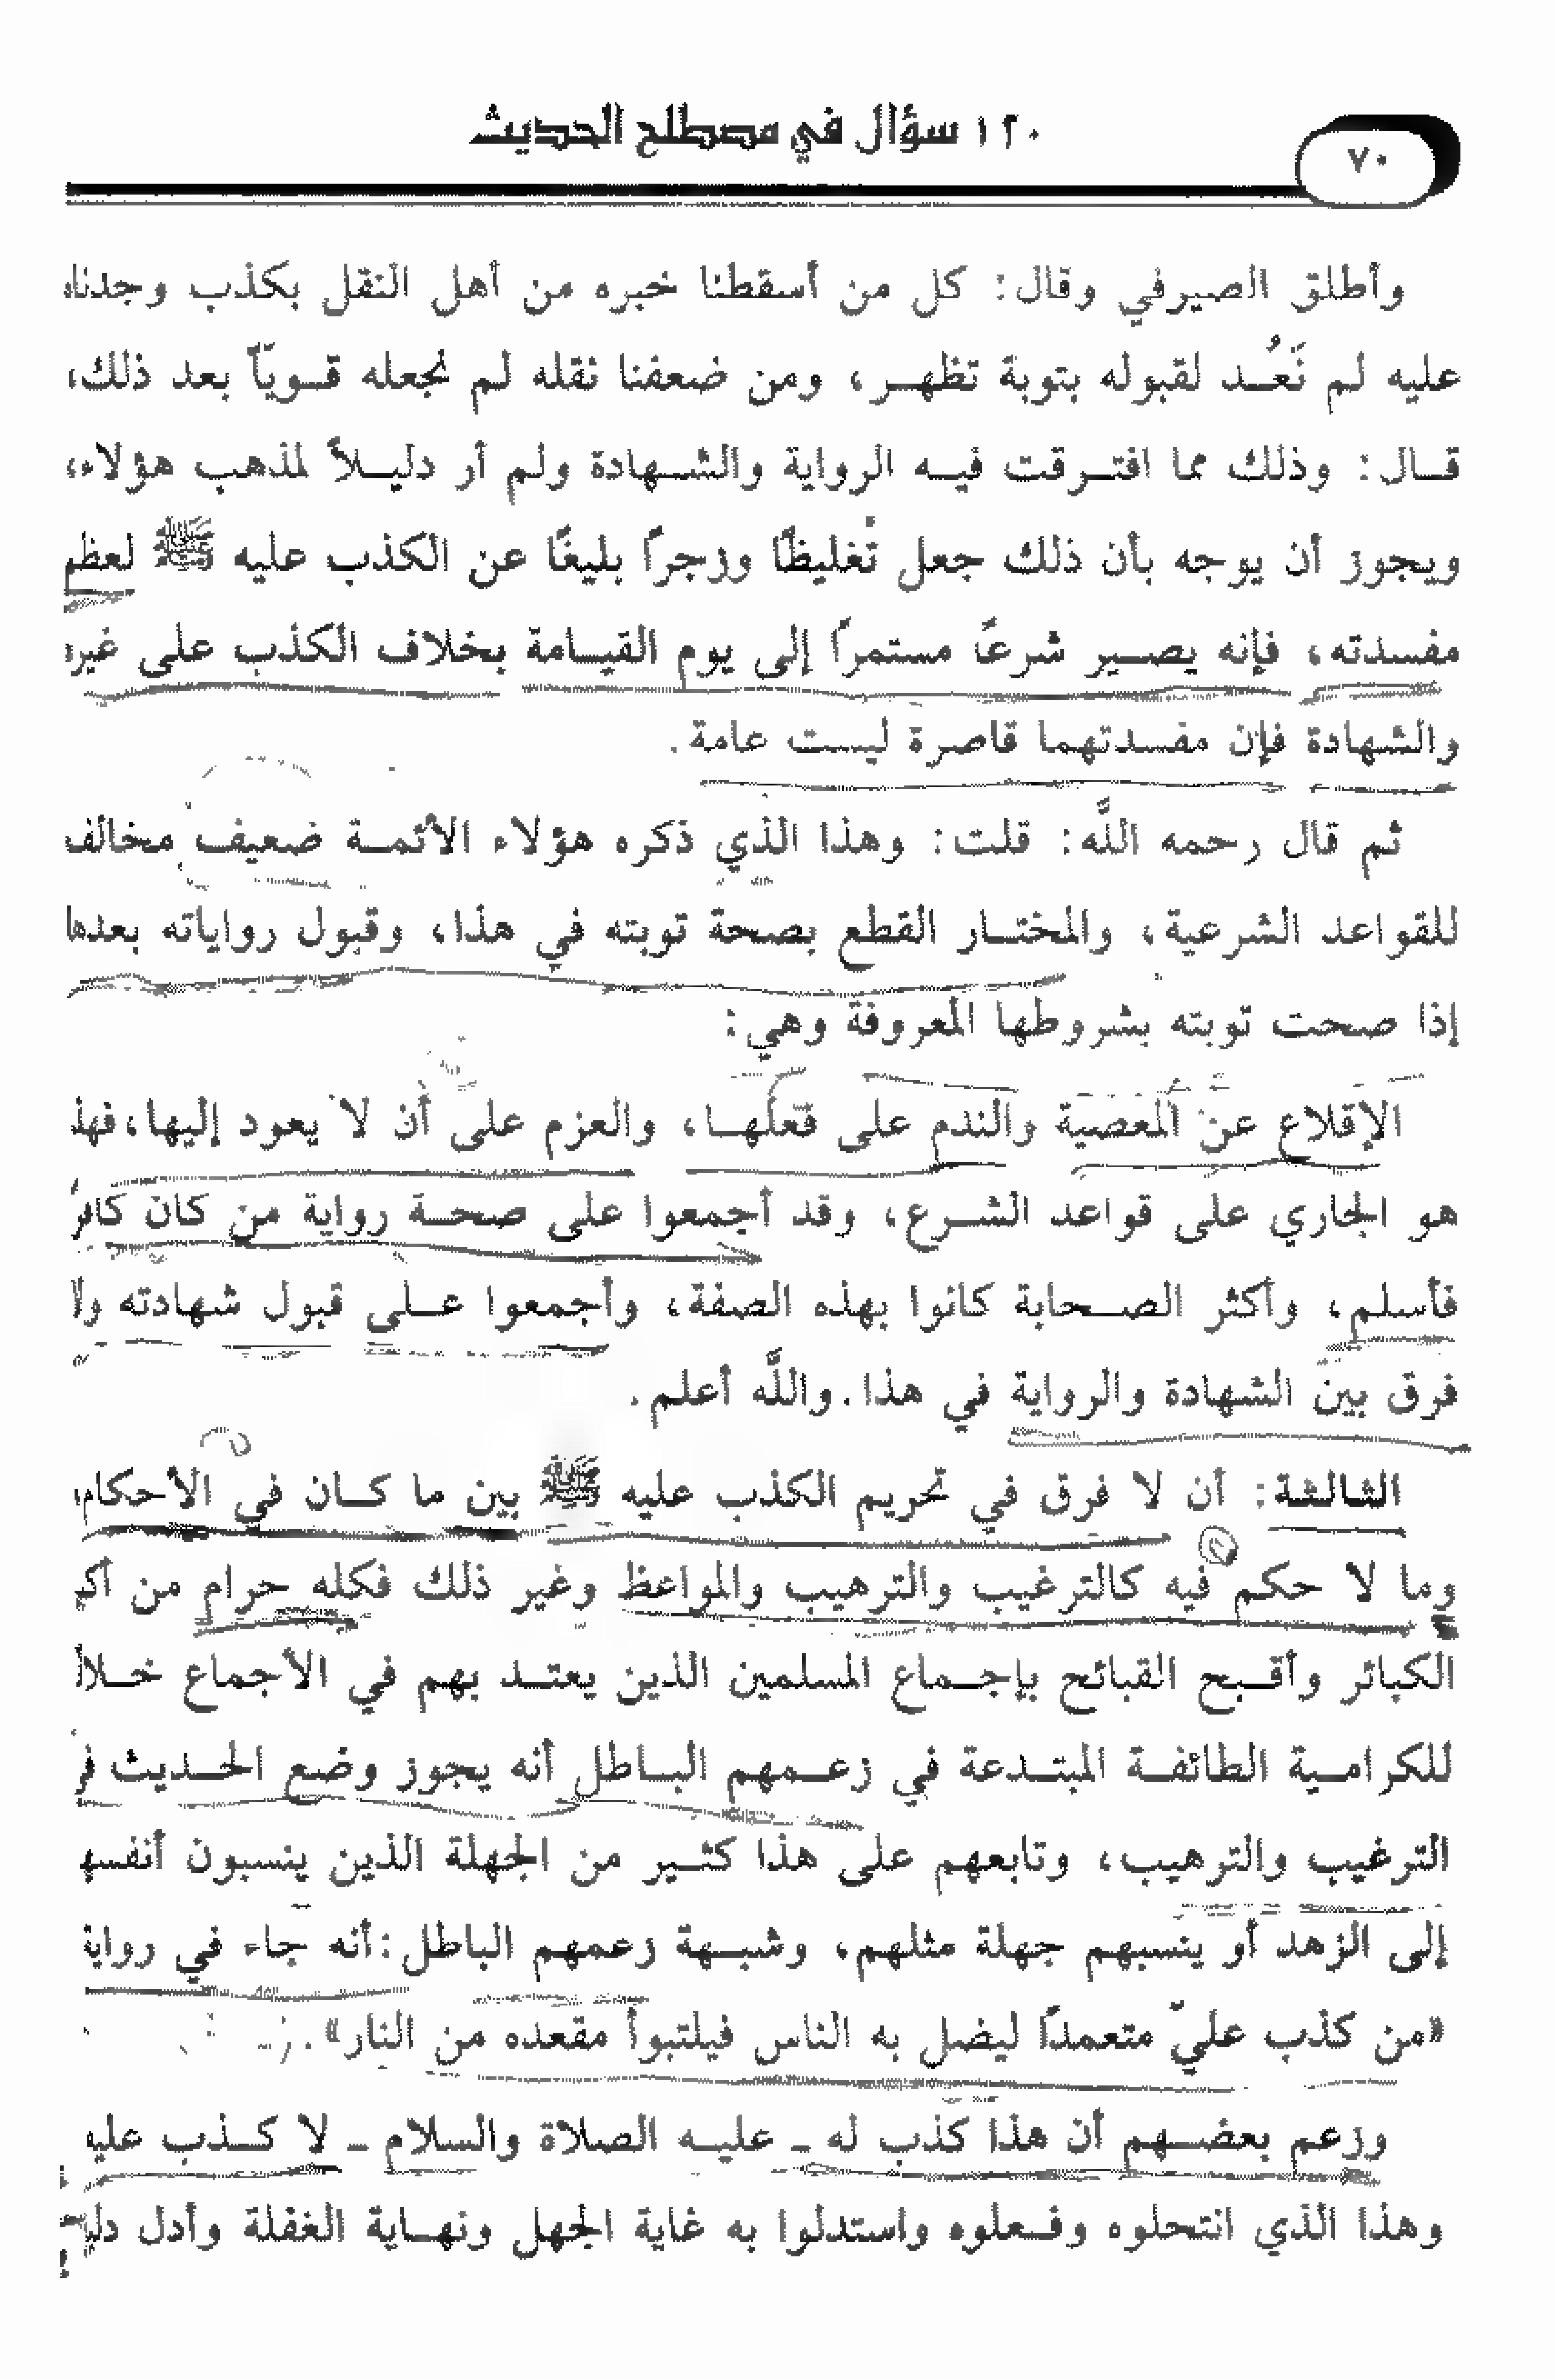 ١٢٠ سؤال في مصطلح الحديث
٧٠
وأطلق الصيرفي وقال: كل من أسقطنا خبره من أهل النقل بكذب وجدناه
عليه لم نَعُد لقبوله بتوبة تظهر، ومن ضعفنا نقله لم نجعله قويّاً بعد ذلك،
قال: وذلك مما افترقت فيه الرواية والشهادة ولم أر دليلاً لمذهب هؤلاء،
ويجوز أن يوجه بأن ذلك جعل تغليظًا وزجرًا بليغًا عن الكذب عليه ﷺ لعظم
مفسدته، فإنه يصير شرعًا مستمرًا إلى يوم القيامة بخلاف الكذب على غيره
والشهادة فإن مفسدتهما قاصرة ليست عامة.
ثم قال رحمه اللَّه: قلت: وهذا الذي ذكره هؤلاء الأئمة ضعيف مخالف
للقواعد الشرعية، والمختار القطع بصحة توبته في هذا، وقبول رواياته بعدها
إذا صحت توبته بشروطها المعروفة وهي:
الإقلاع عن المعصية والندم على فعلها، والعزم على أن لا يعود إليها، فهذ
هو الجاري على قواعد الشرع، وقد أجمعوا على صحة رواية من كان كافرً
فأسلم، وأكثر الصحابة كانوا بهذه الصفة، وأجمعوا على قبول شهادته ولا
فرق بين الشهادة والرواية في هذا. واللَّه أعلم.
الثالثة: أن لا فرق في تحريم الكذب عليه ﷺ بين ما كان في الأحكام
وما لا حكم فيه كالترغيب والترهيب والمواعظ وغير ذلك فكله حرام من أكبـ
الكبائر وأقبح القبائح بإجماع المسلمين الذين يعتد بهم في الأجماع خلافًا
للكرامية الطائفة المبتدعة في زعمهم الباطل أنه يجوز وضع الحديث في
الترغيب والترهيب، وتابعهم على هذا كثير من الجهلة الذين ينسبون أنفسهـ
إلى الزهد أو ينسبهم جهلة مثلهم، وشبهة زعمهم الباطل: أنه جاء في رواية
«من كذب عليّ متعمدًا ليضل به الناس فيلتبوأ مقعده من النار».
وزعم بعضهم أن هذا كذب له - عليه الصلاة والسلام - لا كذب عليه
وهذا الذي انتحلوه وفعلوه واستدلوا به غاية الجهل ونهاية الغفلة وأدل دليل